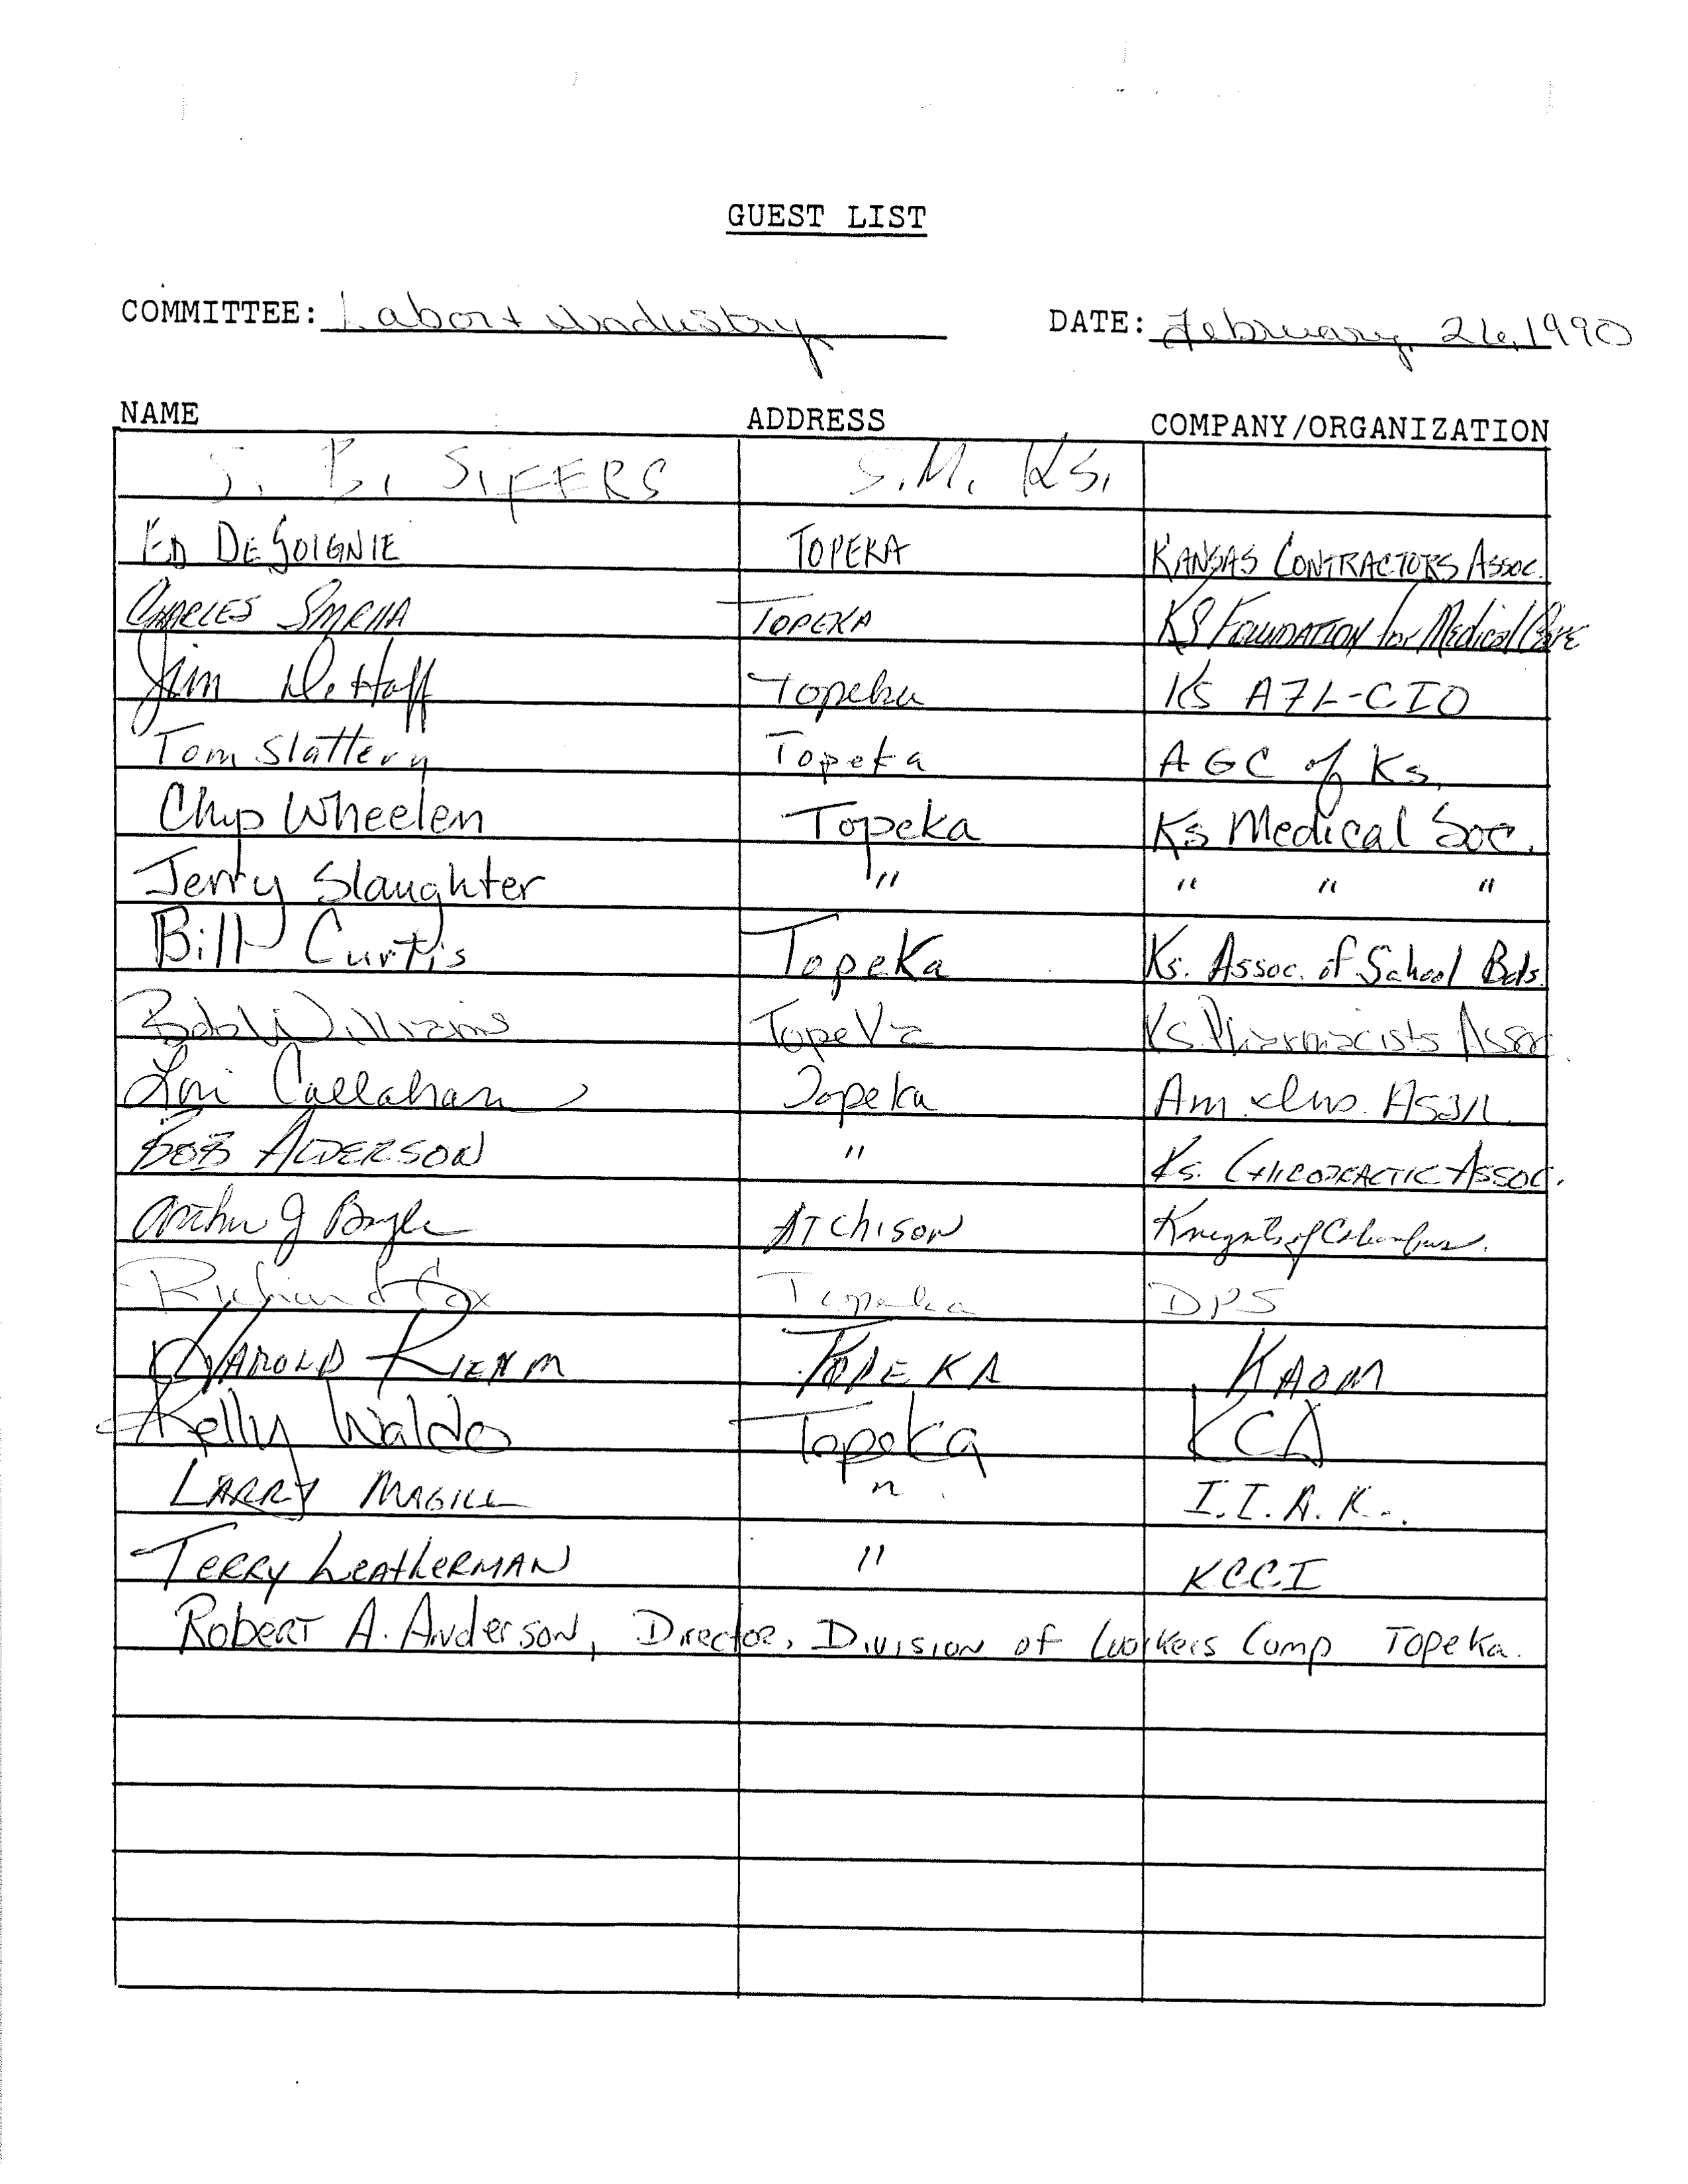 GUEST LIST
COMMITTEE: Labor + Industry DATE: February 26, 1990
NAME ADDRESS COMPANY/ORGANIZATION
J. B. SIFFERS S.M. KS.
ED DESOIGNIE TOPEKA KANSAS CONTRACTORS ASSOC.
CHARLES SMRHA TOPEKA KS FOUNDATION for Medical CARE
Jim DeHoff Topeka Ks AFL-CIO
Tom Slattery Topeka AGC of Ks.
Chip Wheelen Topeka Ks Medical Soc.
Jerry Slaughter " " " "
Bill Curtis Topeka Ks. Assoc. of School Bds.
Bob Williams Topeka Ks Pharmacists Assoc.
Lori Callahan Topeka Am. Ins. Assn.
BOB ALDERSON " Ks. CHIROPRACTIC ASSOC.
Arthur J Boyle ATchison Knights of Columbus.
Richard Cox Topeka DPS
HAROLD RIEHM TOPEKA KAOM
Kelly Waldo Topeka KCA
LARRY MAGILL " I.I.A.K.
TERRY LEATHERMAN " KCCI
Robert A. Anderson, Director, Division of Workers Comp Topeka.